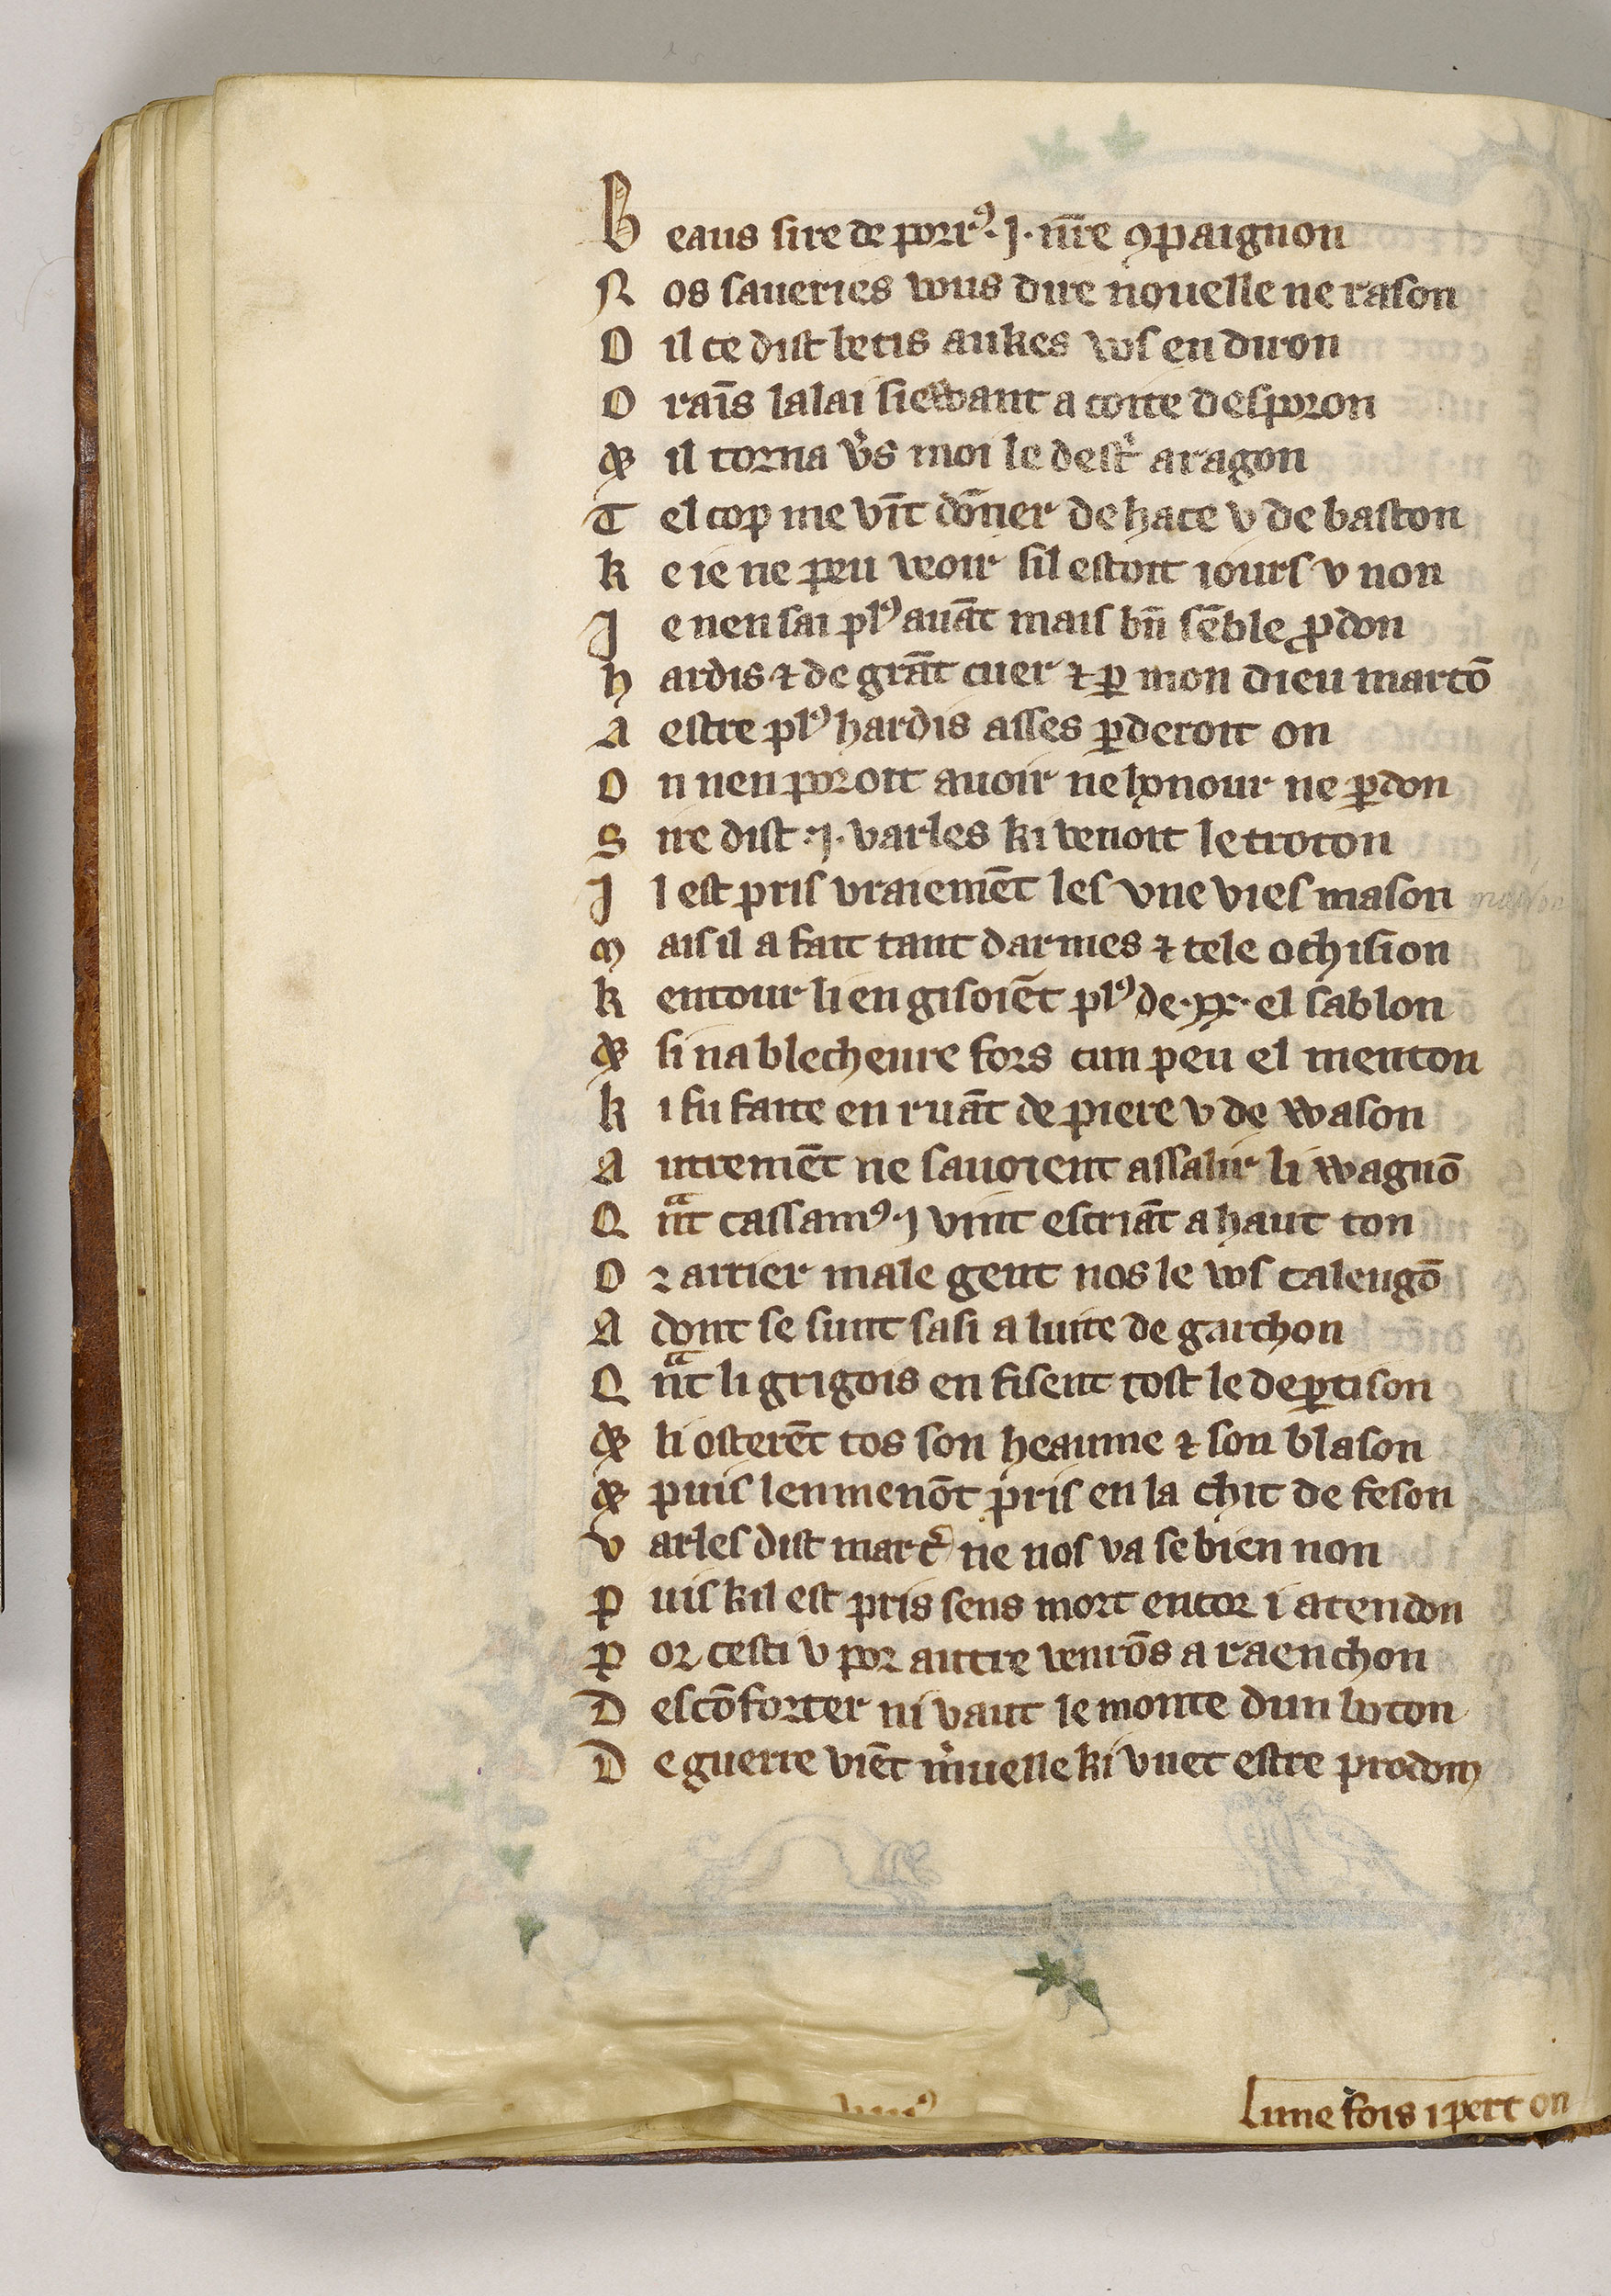 B eaus sire de porrꝰ .J. nr̄e ꝯpaignon
N os saueries vous dire nouelle ne rason
O il ce dist betis aukes vos en diron
O rains̄ lalai siewant a coite desporon
⁊ il torna v̓s moi le destr̓ aragon
T el cop me vīt dōner de hace v de baston
k e ie ne peu veoir sil estoit iours v non
J e nen sai plꝰ auāt mais bn̄ sēble ꝓdon
h ardis ⁊ de grāt cuer ⁊ ꝑ mon dieu martō
A estre plꝰ hardis asses ꝑderoit on
O n nen poroit auoir ne honour ne ꝑdon
S ire dist .J. varles ki venoit le troton
J l est pris vraiemēt les vne vies mason
m ais il a fait tant darmes ⁊ tele ochision
k entour li en gisoiēt plꝰ de .xx. el sablon
⁊ si na blecheure fors cun peu el menton
k i fu faite en ruāt de piere v de wason
A utremēt ne sauoient assalir li wagnō
Q nᵃt cassamꝰ .J vint escriāt a haut ton
O r arrier male gent nos le vos calengō
A dont se sunt sasi a luite de garchon
Q nᵃt li grigois en fisent tost le deꝑtison
⁊ li osterēt tos son heaume ⁊ son blason
⁊ puis lenmenōt pris en la chit de feson
v arles dist marc̓ ne nos va se bien non
p uis kil est pris sens mort encor i atendon
p or cesti v por autre venrōs a raenchon
D escōforter ni vaut le monte dun boton
D e guerre viēt m̓uelle ki vuet estre prodom
lune fois i pert on